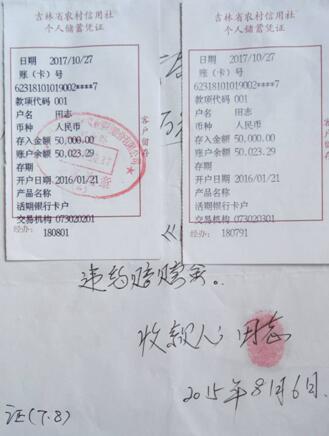 吉林省农村信用社
个人储蓄凭证
日期 2017/10/27
账（卡）号
62318101019002****7
款项代码 001
户名 田志
币种 人民币
存入金额 50,000.00
账户余额 50,023.29
存期
开户日期 2016/01/21
产品名称
活期银行卡户
交易机构 073020201
经办: 180801
客户留存
吉林省农村信用社
个人储蓄凭证
日期 2017/10/27
账（卡）号
62318101019002****7
款项代码 001
户名 田志
币种 人民币
存入金额 50,000.00
账户余额 50,023.29
存期
开户日期 2016/01/21
产品名称
活期银行卡户
交易机构 073020301
经办: 180791
客户留存
违约赔赎金。
收款人：田志
2015年8月6日
证(7.8)